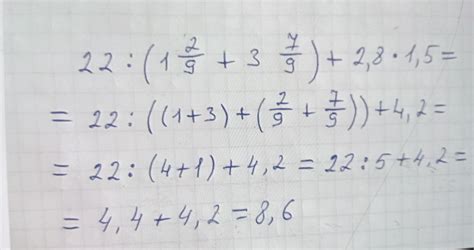 22 : (1 2/9 + 3 7/9) + 2,8 · 1,5 =
= 22 : ((1+3) + (2/9 + 7/9)) + 4,2 =
= 22 : (4+1) + 4,2 = 22 : 5 + 4,2 =
= 4,4 + 4,2 = 8,6